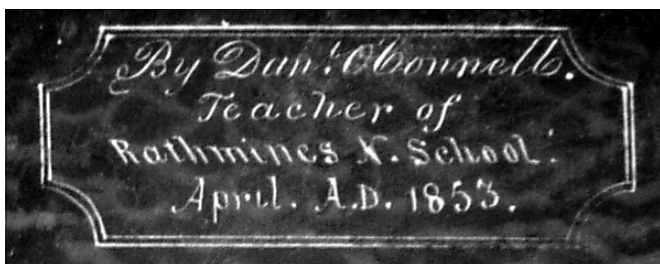 By Danl. OConnell.
Teacher of
Rathmines N. School.
April. A.D. 1853.